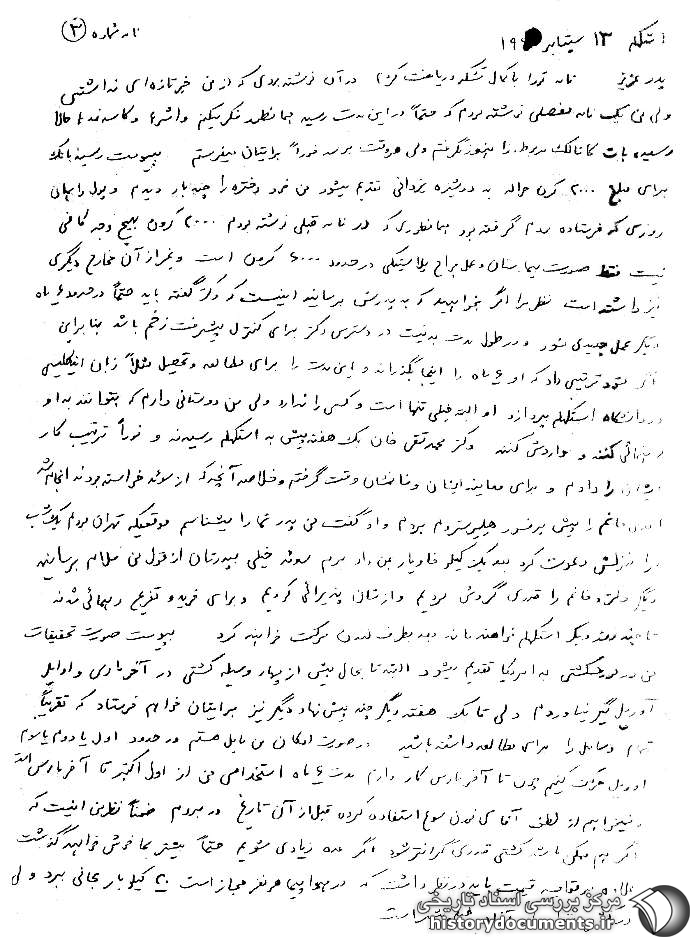 نامه شماره (۳)
استکهلم ۱۳ سپتامبر ۱۹
پدر عزیز نامه تورا با کمال تشکر دریافت کردم در آن نوشته بودی که از من خبر تازه‌ای نداشتی
ولی من یک نامه مفصلی نوشته بودم که حتماً در این مدت رسیده همانطور فکر میکنم و حالا
رسیده بابت کاتالگ مربوطه را هنوز نگرفتم ولی هر وقت برسد فوراً برایتان میفرستم بپیوست رسید بانک
برای مبلغ ۲۰۰۰ کرن حواله به دوشیزه یزدانی تقدیم میشود من خود دختره را چند بار دیدم و پول را همان
روزی که فرستاده بودم گرفته بود همانطوری که در نامه قبلی نوشته بودم ۲۰۰۰ کرون بهیچ وجه کافی
نیست فقط صورت بیمارستان و عمل جراح پلاستیکی در حدود ۶۰۰۰ کرون است و بغیر از آن مخارج دیگری
نیز داشته است نظر مرا اگر بخواهید که به پدرش برسانید اینست که دکتر گفته باید حتماً در حدود ۶ ماه
دیگر عمل جدیدی شود و در طول مدت بدنیست در دسترس دکتر برای کنترل پیشرفت زخم باشد بنابراین
اگر بشود ترتیبی داد که او ۶ ماه را اینجا بگذراند و این مدت را برای مطالعه و تحصیل مثلاً زبان انگلیسی
در دانشگاه استکهلم بپردازد او البته خیلی تنها است و کسی را ندارد ولی من دوستانی دارم که بتوانند به او
راهنمائی کنند و واردش کنند دکتر محمدتقی خان یک هفته پیش به استکهلم رسیدند و فوراً ترتیب کار
ایشان را دادم و برای معاینه ایشان و خانمشان وقت گرفتم و خلاصه آنچه که از سوئد خواسته بودند انجام شد
خانم را پیش پرفسور بردم و او گفت من پدر شما را میشناسم موقعیکه تهران بودم یک شب
مرا منزلش دعوت کرد بعد یک کیلو خاویار بمن داد بردم سوئد خیلی بپدرتان از قول من سلام برسانید
دیگر دکتر و خانم را قدری گردش بردیم و از شان پذیرائی کردیم و برای خرید و تفریح رهنمائی شدند
تا چند روز دیگر استکهلم خواهند ماند و بعد بطرف لندن حرکت خواهند کرد بپیوست صورت تحقیقات
من در مورد کشتی به امریکا تقدیم میشود البته تا بحال بیش از چهار وسیله کشتی در آخر مارس و اوایل
آوریل گیر نیاوردم ولی تا یک هفته دیگر چند پیشنهاد دیگر نیز برایتان خواهم فرستاد که تقریباً
تمام وسایل را برای مطالعه داشته باشید در صورت امکان من مایل هستم در حدود اول یا دوم یا سوم
آوریل حرکت کنیم چون تا آخر مارس کار دارم مدت ۶ ماه استخدامی من از اول اکتبر تا آخر مارس است
و نمیخواهم از لطف آقای سوء استفاده کرده قبل از آن تاریخ در بروم ضمناً نظر من اینست که
اگر هم ممکن باشد کشتی قدری گرانتر شود اگر عده زیادی شویم حتماً بیشتر بما خوش خواهد گذشت
بعلاوه در مقایسه قیمت باید در نظر داشت که در هواپیما هر نفر مجاز است ۲۰ کیلو بار مجانی ببرد ولی
است
مرکز بررسی اسناد تاریخی
historydocuments.ir